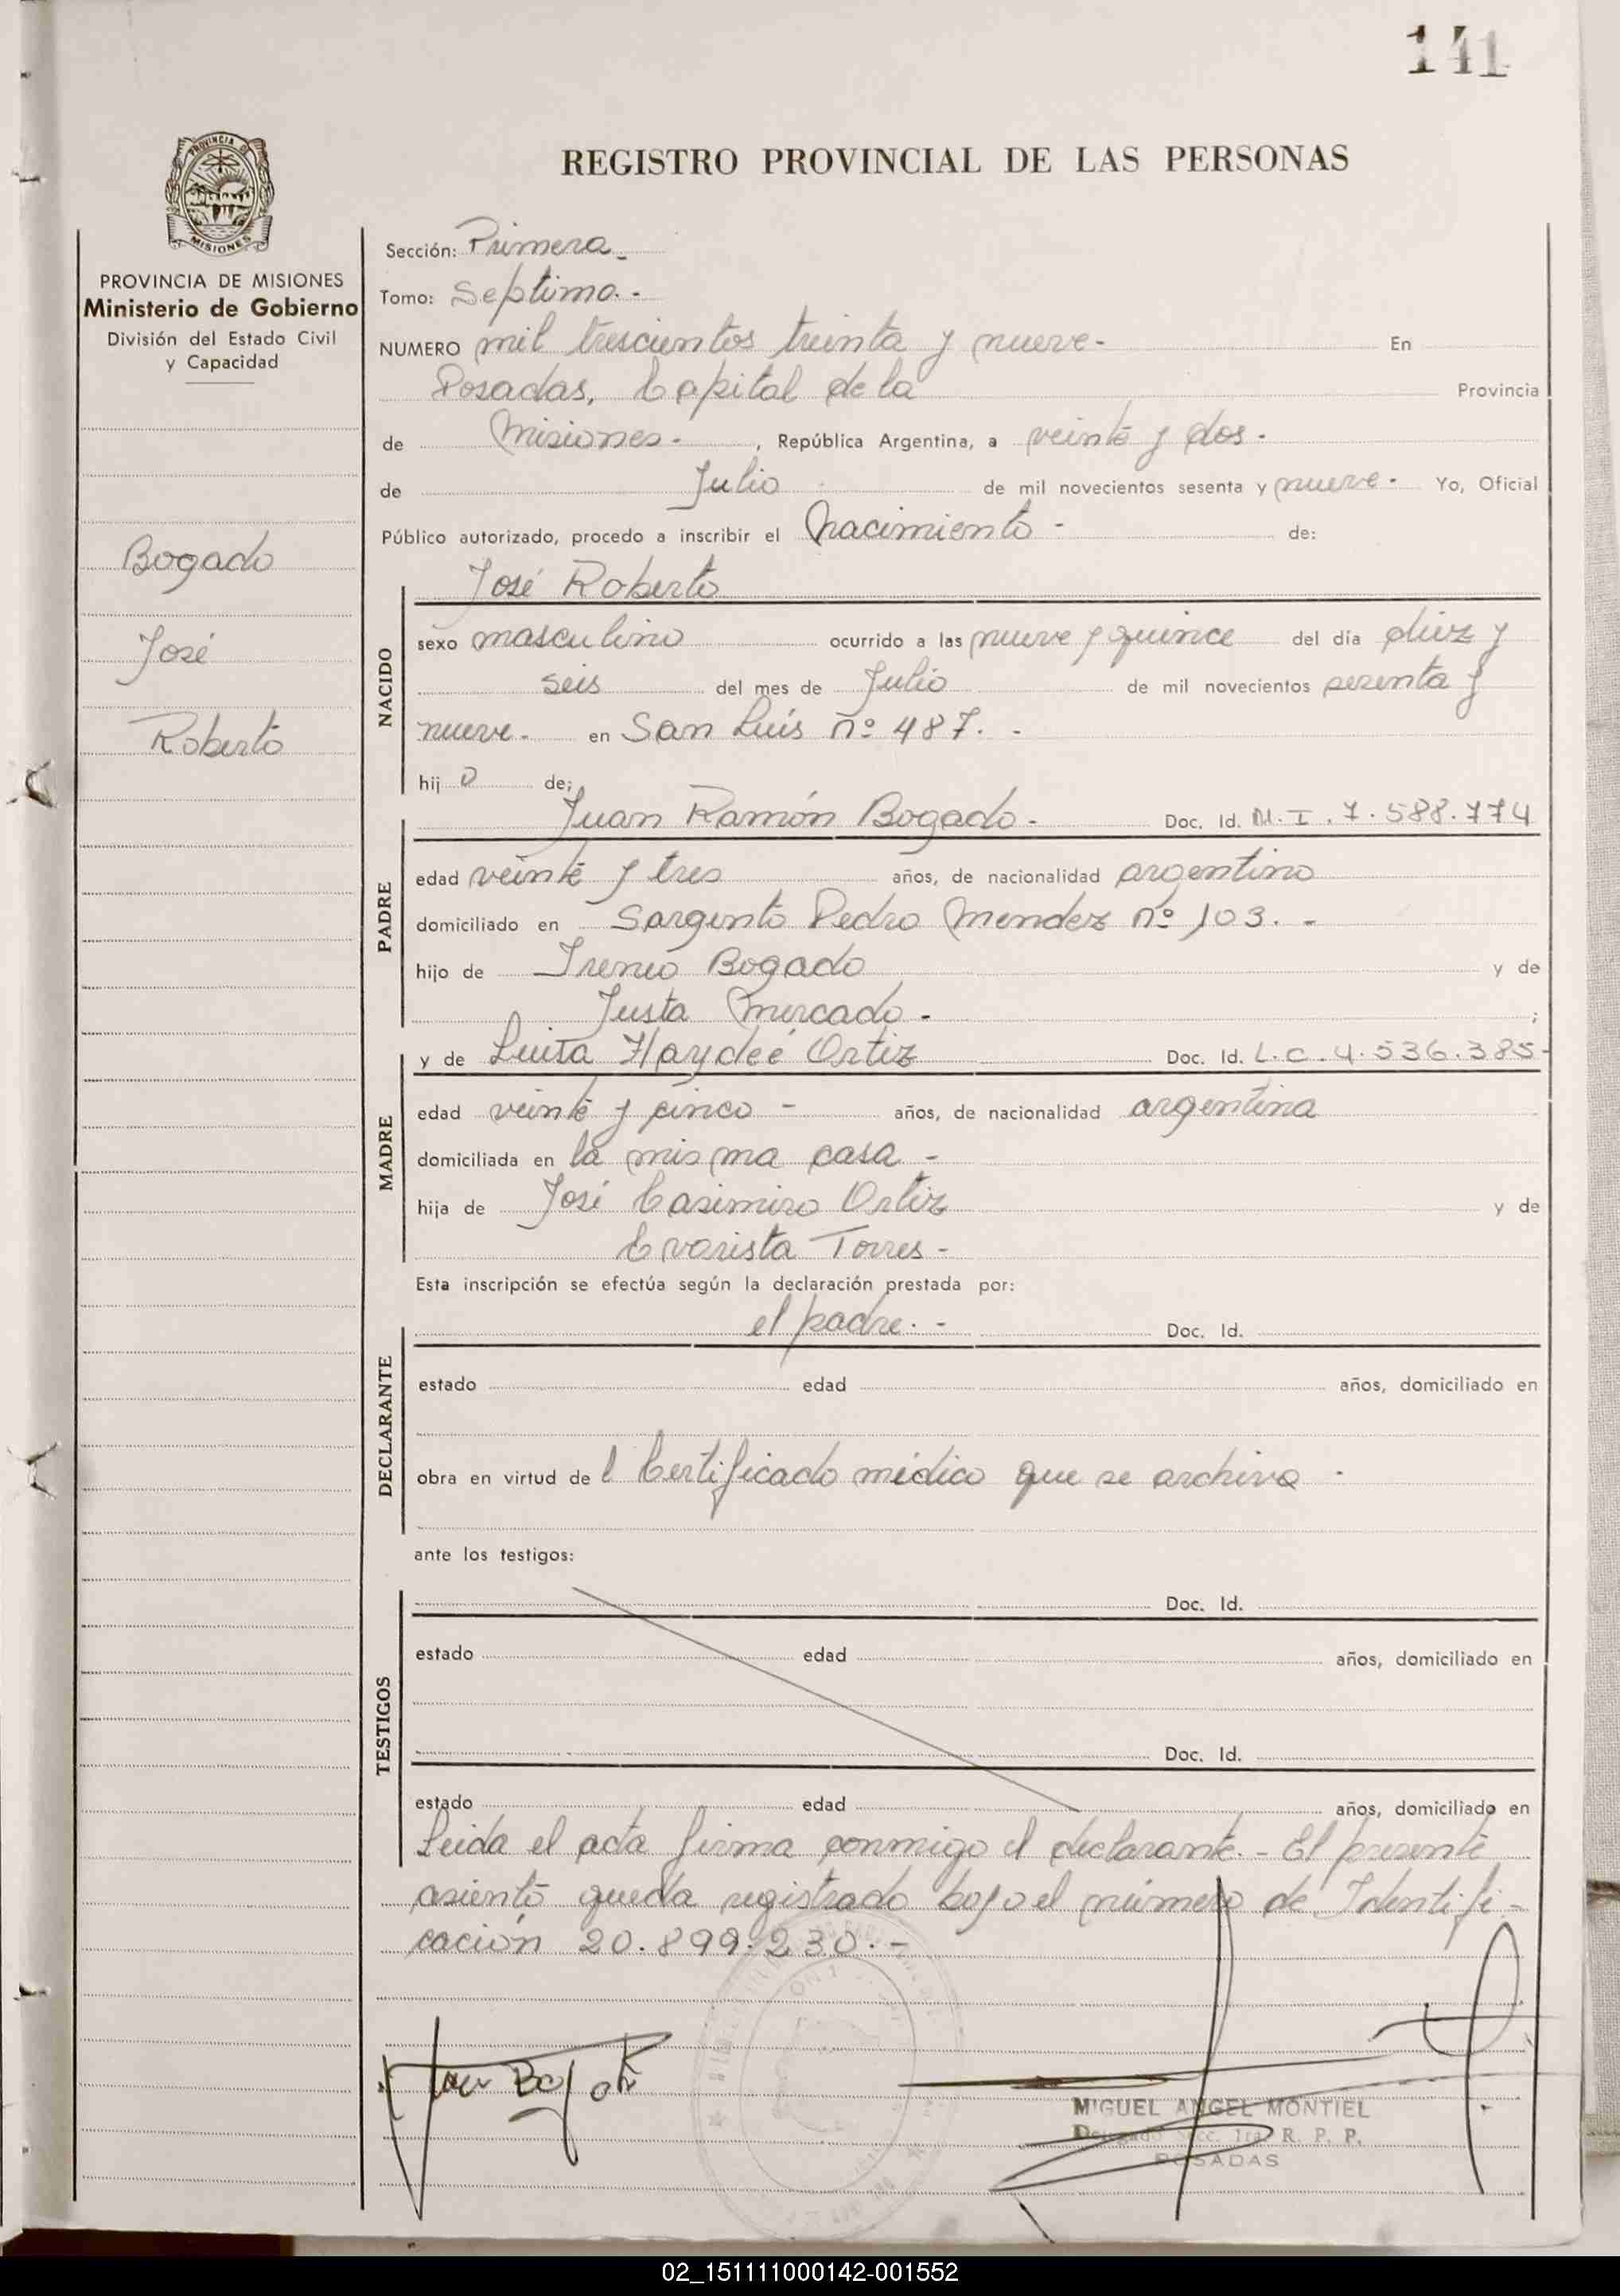 141
REGISTRO PROVINCIAL DE LAS PERSONAS
PROVINCIA DE
MISIONES
PROVINCIA DE MISIONES
Ministerio de Gobierno
División del Estado Civil
y Capacidad
Bogado
José
Roberto
Sección: Primera -
Tomo: Septimo. -
NUMERO mil trescientos treinta y nueve - En
Posadas, Capital de la Provincia
de Misiones - , República Argentina, a veinte y dos -
de Julio de mil novecientos sesenta y nueve - Yo, Oficial
Público autorizado, procedo a inscribir el Nacimiento - de:
José Roberto
NACIDO
sexo masculino ocurrido a las nueve y quince del día diez y
seis del mes de Julio de mil novecientos sesenta y
nueve - en San Luis nº 487. -
hijo de;
PADRE
Juan Ramón Bogado - Doc. Id. M. I. 7.588.774
edad veinte y tres años, de nacionalidad argentino
domiciliado en Sargento Pedro Mendez nº 103. -
hijo de Ireneo Bogado y de
Justa Mercado - ;
MADRE
y de Luisa Haydeé Ortiz Doc. Id. L.C. 4.536.385-
edad veinte y cinco - años, de nacionalidad argentina
domiciliada en la misma casa -
hija de José Casimiro Ortiz y de
Evarista Torres -
Esta inscripción se efectúa según la declaración prestada por:
DECLARANTE
el padre. - Doc. Id.
estado edad años, domiciliado en
obra en virtud del Certificado médico que se archiva -
ante los testigos:
TESTIGOS
Doc. Id.
estado edad años, domiciliado en
Doc. Id.
estado edad años, domiciliado en
Leida el acta firma conmigo el declarante. - El presente
asiento queda registrado bajo el número de Identifi-
cación 20.899.230. -
MIGUEL ANGEL MONTIEL
Delegado Secc. 1ra. R. P. P.
POSADAS
02_151111000142-001552